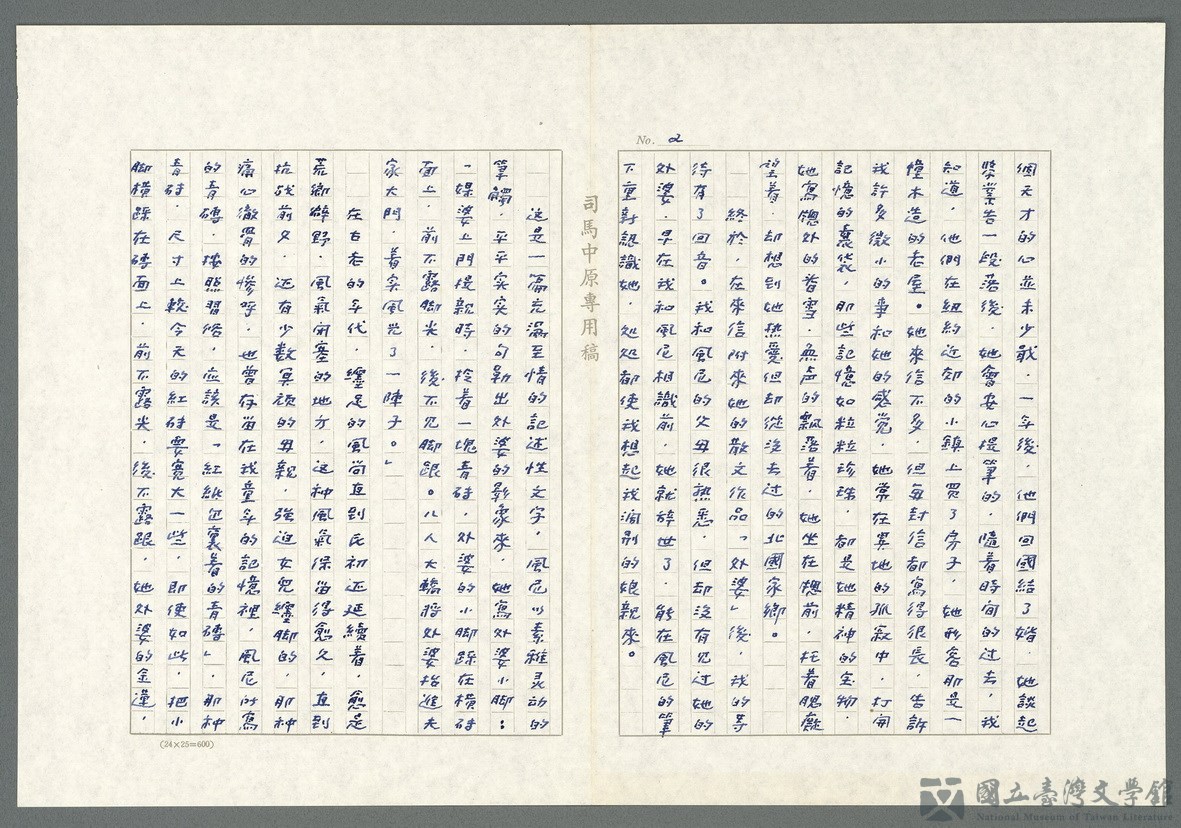 No. 2
個天才的心並未少戢．一年後，他們回國結了婚，她談起
學業告一段落後，她會安心提筆的．隨着時间的过去，我
知道，他們在紐約近郊的小鎮上買了房子，她形容那是一
幢木造的老屋。她來信不多，但每封信都寫得很長，告訴
我許多微小的事和她的感觉，她常在異地的孤寂中，打開
記憶的囊袋，那些記憶如粒粒珍珠，都是她精神的宝物．
她寫窗外的春雪．無声的飄落着．她坐在窗前，托着腮龐
望着．却想到她熱愛但却從沒去过的北國家鄉。
終於，在來信附來她的散文作品「外婆」後，我的等
待有了回音。我和風尼的父母很熟悉，但却沒有见过她的
外婆．早在我和風尼相識前，她就辞世了．能在風尼的筆
下重新認識她．処処都使我想起我濶別的娘親來。
司馬中原專用稿
這是一篇充滿至情的記述性文字，風尼以素雅灵动的
筆觸，平平实实的勾勒出外婆的影象來，她寫外婆小脚：
「媒婆上門提親時．拎着一塊青砖，外婆的小脚踩在橫砖
面上．前不露脚尖，後不见脚跟。八人大轎將外婆抬進夫
家大門，着实風光了一陣子。」
在古老的年代，纏足的風尚直到民初还延續着，愈是
荒鄉僻野．風氣闭塞的地方，這种風氣保留得愈久，直到
抗战前夕，还有少数冥顽的母親，強迫女兒纏脚的，那种
痛心徹骨的慘呼，也曾存留在我童年的記憶裡，風尼所寫
的青磚．按照習俗，应該是「紅紙包裹着的青磚」那种
青砖．尺寸上較今天的紅砖要寬大一些，即使如此，把小
脚橫踩在磚面上．前不露尖．後不露跟．她外婆的金蓮，
(24×25=600)
國立臺灣文學館
National Museum of Taiwan Literature